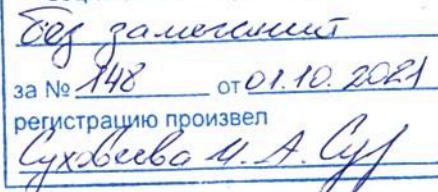 без замечаний
за № 148 от 01.10.2021
регистрацию произвел
И. А.